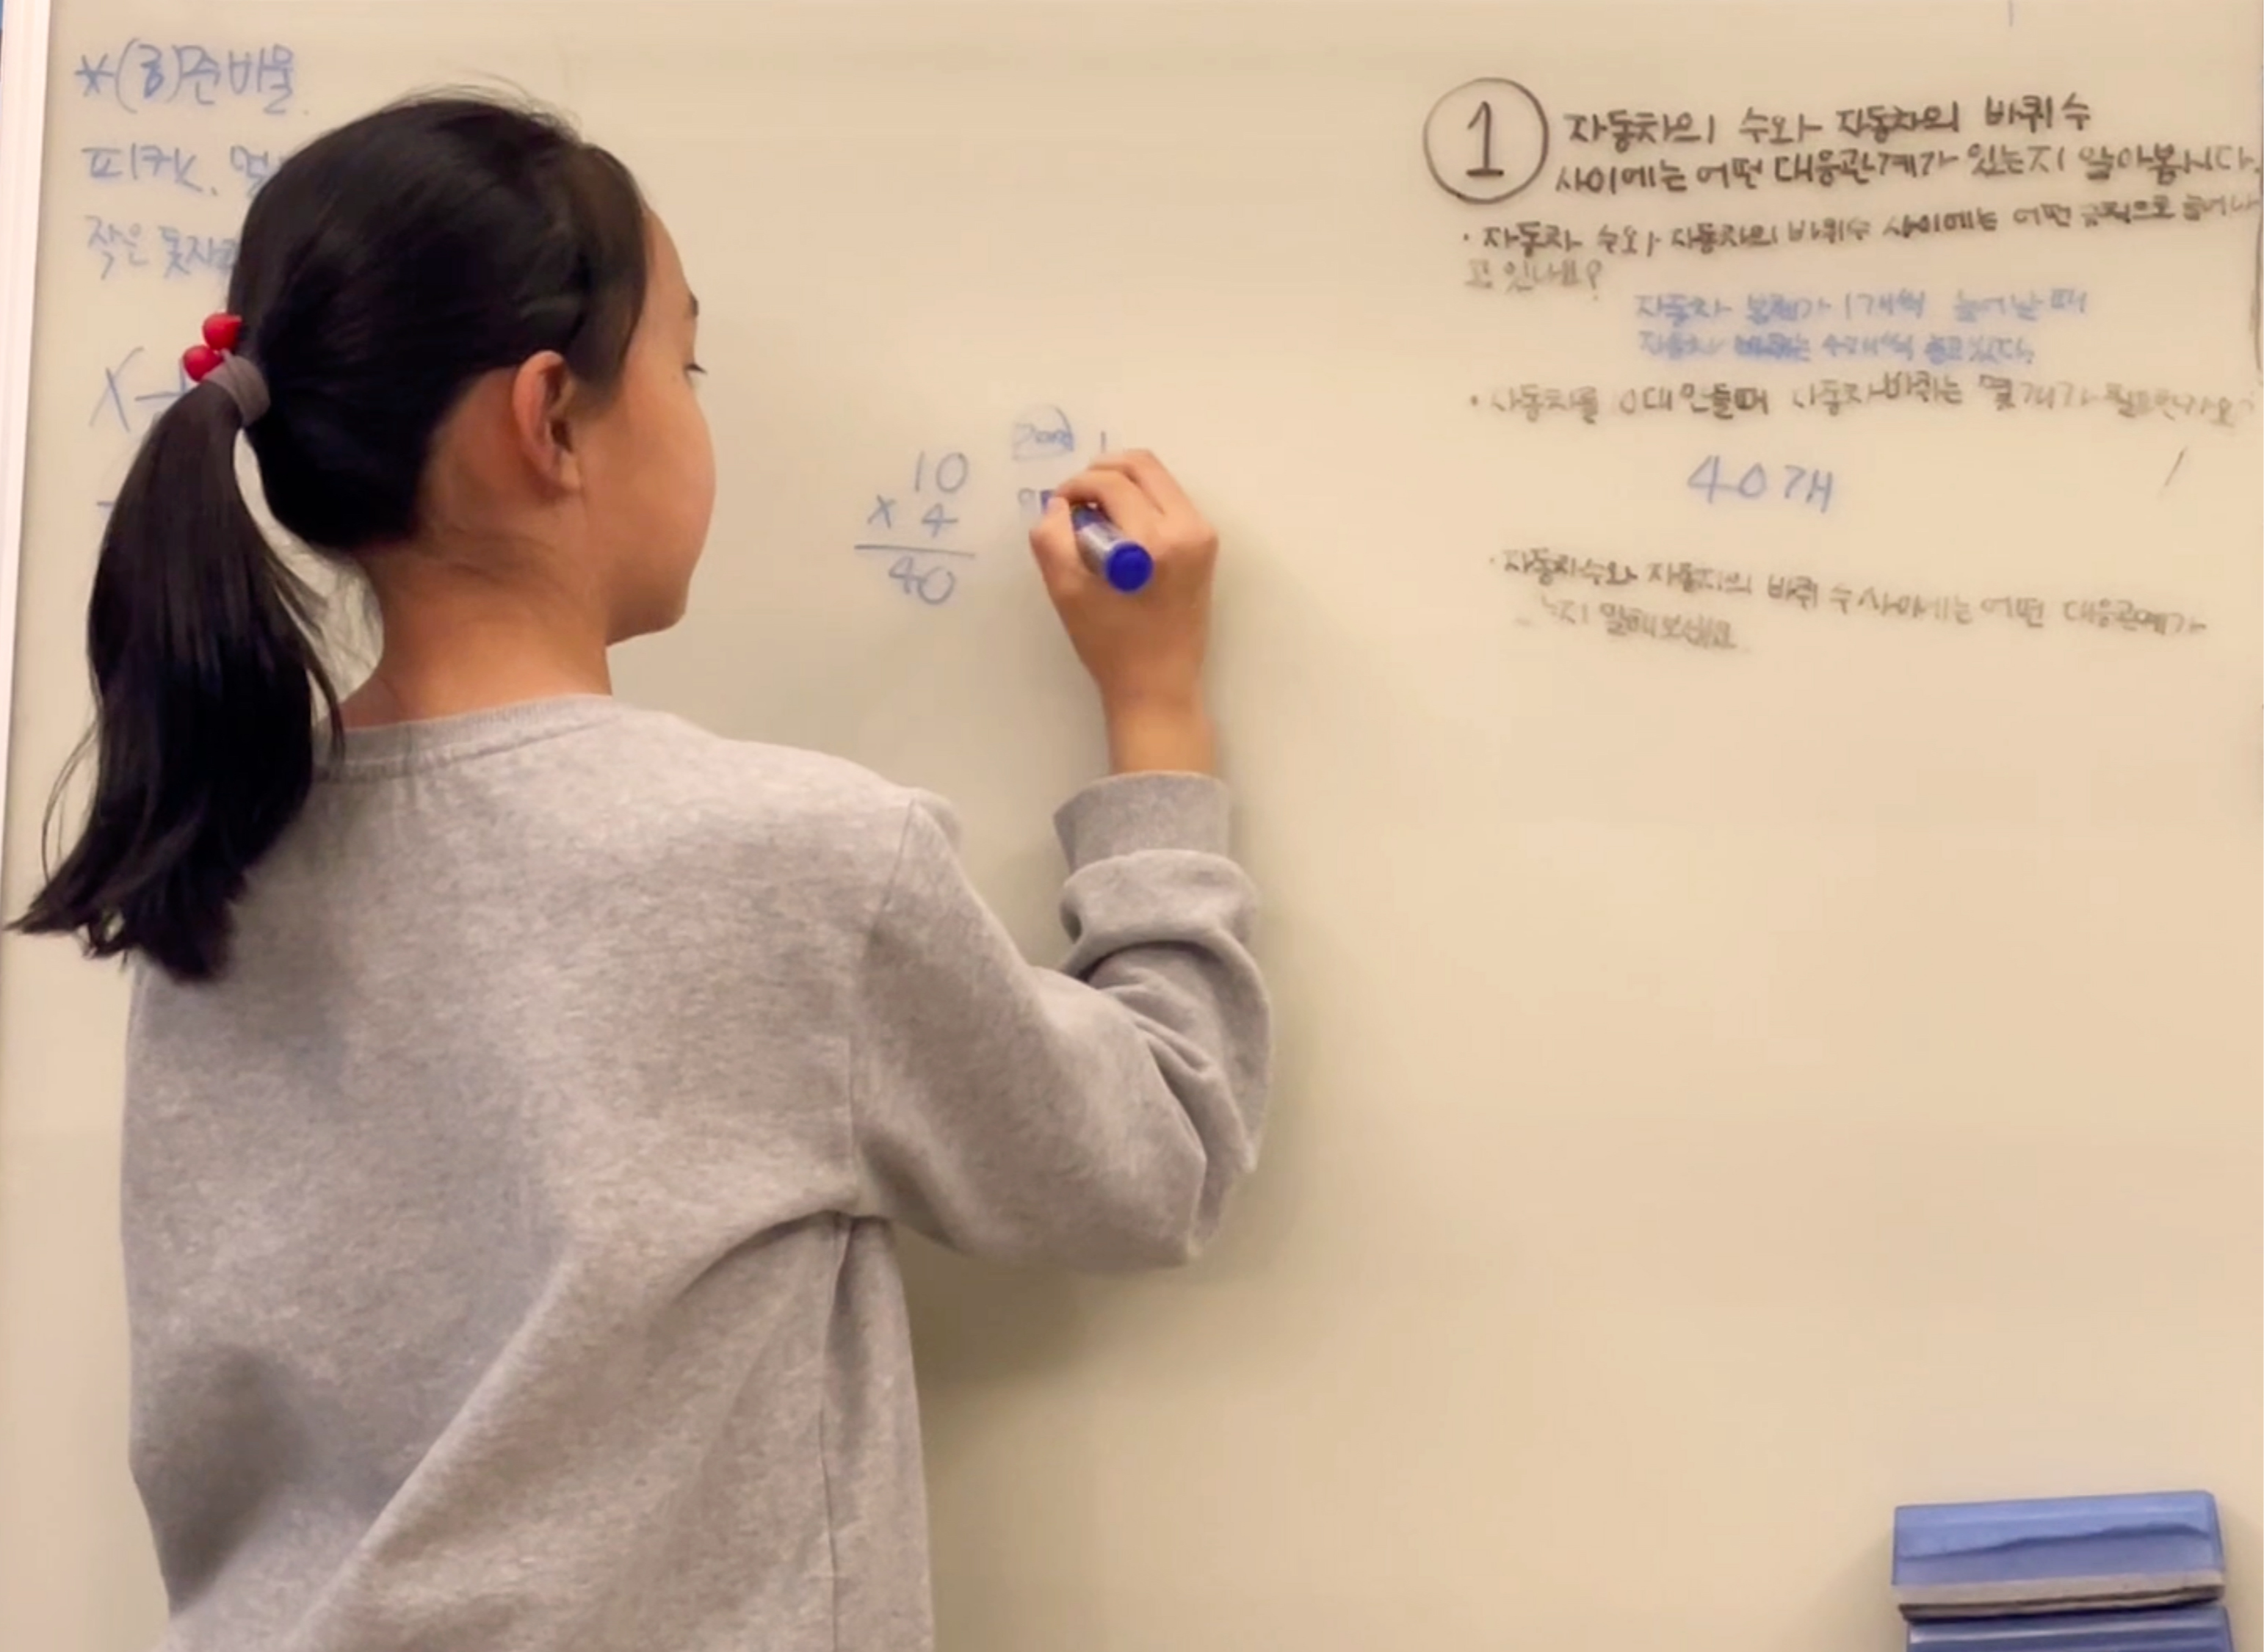 *(3)준비물
피켓,
작은 돗자리
10
× 4
40
① 자동차의 수와 자동차의 바퀴 수
사이에는 어떤 대응관계가 있는지 알아봅시다.
· 자동차 수와 자동차의 바퀴수 사이에는 어떤 규칙으로 늘어나
고 있나요?
자동차 1개씩 늘어날 때
자동차 바퀴는 4개씩
· 자동차를 10대 만들때 자동차 바퀴는 몇 개가 필요한가요?
40개
· 자동차 수와 자동차의 바퀴 수 사이에는 어떤 대응관계가
는지 말해보세요